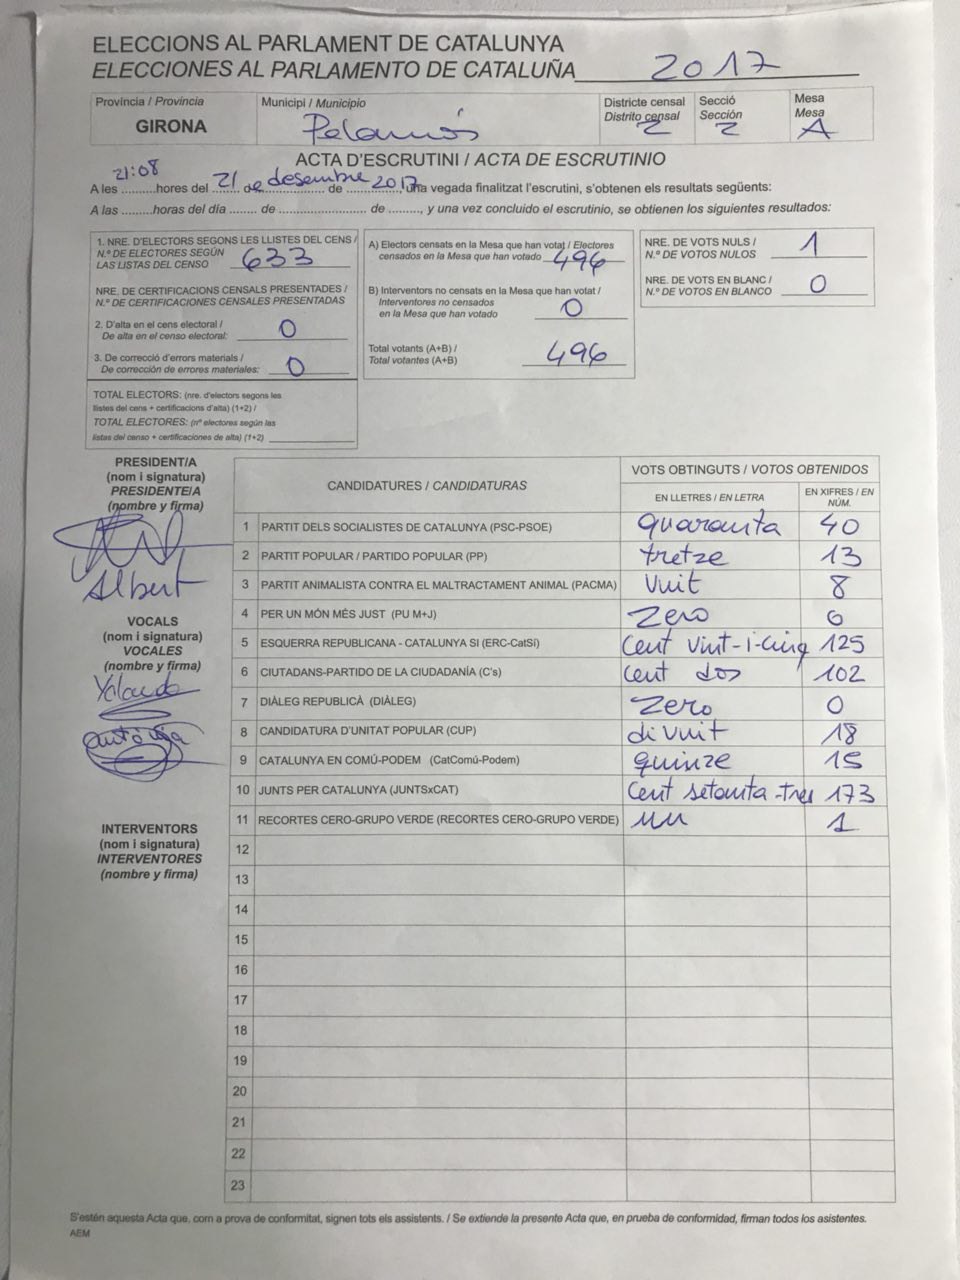 ELECCIONS AL PARLAMENT DE CATALUNYA
ELECCIONES AL PARLAMENTO DE CATALUÑA 2017
Província / Provincia
GIRONA
Municipi / Municipio
Palamós
Districte censal
Distrito censal
2
Secció
Sección
2
Mesa
Mesa
A
ACTA D'ESCRUTINI / ACTA DE ESCRUTINIO
A les 21:08 hores del 21 de desembre de 2017, una vegada finalitzat l'escrutini, s'obtenen els resultats següents:
A las .........horas del día ........ de ......................... de ........, y una vez concluido el escrutinio, se obtienen los siguientes resultados:
1. NRE. D'ELECTORS SEGONS LES LLISTES DEL CENS /
N.º DE ELECTORES SEGÚN
LAS LISTAS DEL CENSO 633
NRE. DE CERTIFICACIONS CENSALS PRESENTADES /
N.º DE CERTIFICACIONES CENSALES PRESENTADAS
2. D'alta en el cens electoral /
De alta en el censo electoral: 0
3. De correcció d'errors materials /
De corrección de errores materiales: 0
TOTAL ELECTORS: (nre. d'electors segons les
llistes del cens + certificacions d'alta) (1+2) /
TOTAL ELECTORES: (nº electores según las
listas del censo + certificaciones de alta) (1+2)
A) Electors censats en la Mesa que han votat / Electores
censados en la Mesa que han votado 496
B) Interventors no censats en la Mesa que han votat /
Interventores no censados
en la Mesa que han votado 0
Total votants (A+B) /
Total votantes (A+B) 496
NRE. DE VOTS NULS /
N.º DE VOTOS NULOS 1
NRE. DE VOTS EN BLANC /
N.º DE VOTOS EN BLANCO 0
PRESIDENT/A
(nom i signatura)
PRESIDENTE/A
(nombre y firma)
Albert
VOCALS
(nom i signatura)
VOCALES
(nombre y firma)
Yolanda
Antònia
INTERVENTORS
(nom i signatura)
INTERVENTORES
(nombre y firma)
CANDIDATURES / CANDIDATURAS
VOTS OBTINGUTS / VOTOS OBTENIDOS
EN LLETRES / EN LETRA
EN XIFRES / EN
NÚM.
1 PARTIT DELS SOCIALISTES DE CATALUNYA (PSC-PSOE) quaranta 40
2 PARTIT POPULAR / PARTIDO POPULAR (PP) tretze 13
3 PARTIT ANIMALISTA CONTRA EL MALTRACTAMENT ANIMAL (PACMA) Vuit 8
4 PER UN MÓN MÉS JUST (PU M+J) Zero 0
5 ESQUERRA REPUBLICANA - CATALUNYA SI (ERC-CatSí) Cent vint-i-cinq 125
6 CIUTADANS-PARTIDO DE LA CIUDADANÍA (C's) Cent dos 102
7 DIÀLEG REPUBLICÀ (DIÀLEG) Zero 0
8 CANDIDATURA D'UNITAT POPULAR (CUP) divuit 18
9 CATALUNYA EN COMÚ-PODEM (CatComú-Podem) quinze 15
10 JUNTS PER CATALUNYA (JUNTSxCAT) Cent setanta-tres 173
11 RECORTES CERO-GRUPO VERDE (RECORTES CERO-GRUPO VERDE) un 1
12
13
14
15
16
17
18
19
20
21
22
23
S'estén aquesta Acta que, com a prova de conformitat, signen tots els assistents. / Se extiende la presente Acta que, en prueba de conformidad, firman todos los asistentes.
AEM